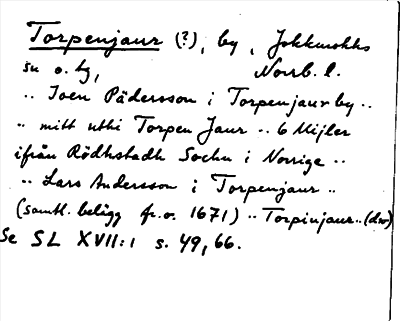 Torpenjaur (?), by, Jokkmokks
sn o. tg, Norrb. l.
.. Joen Pädersson i Torpenjaur by ..
.. mitt uthi Torpen Jaur .. 6 Mijler
ifrån Rödhstadh Sochn i Norrige ..
.. Lars Andersson i Torpenjaur ..
(samtl. belägg fr. o. 1671) .. Torpinjaur .. (ds)
Se SL XVII:1 s. 49, 66.